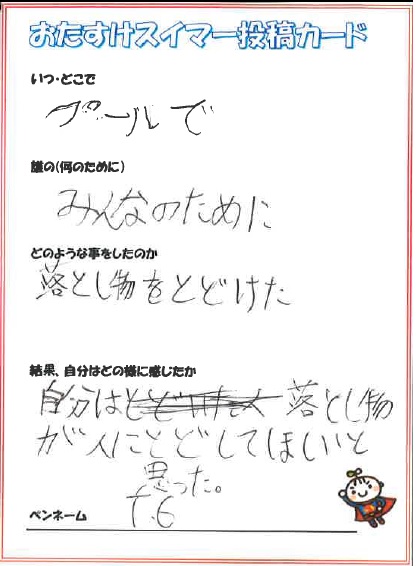 おたすけスイマー投稿カード
いつ・どこで
プールで
誰の(何のために)
みんなのために
どのような事をしたのか
落とし物をとどけた
結果、自分はどの様に感じたか
自分は落とし物
が人にとどしてほしいと
思った。
ペンネーム
T.6